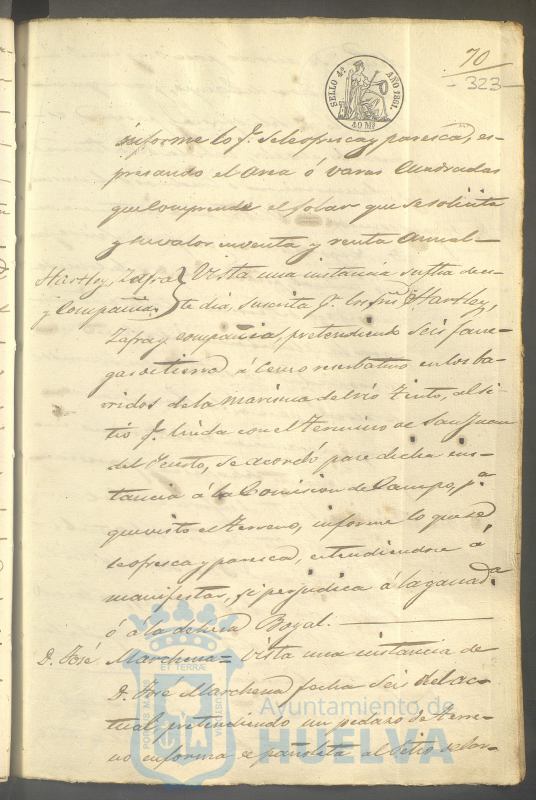 70
323
SELLO 4º AÑO 1861.
40 Ms
informe lo q. se le ofresca y paresca, es-
presando el area ó varas cuadradas
que comprende el solar que se solicita
y su valor en venta y renta anual—
Hartley, Zafra
y Compañia.
Vista una instancia su fha dies-
te dia, suscrita p. los Sres Hartley,
Zafra y compañia, pretendiendo seis fane-
gas de tierra á censo reservativo en los ba-
rridos de la marisma del rio Tinto, al si-
tio q. linda con el termino de San Juan
del Puerto, se acordó pase dicha ins-
tancia á la Comision de Campo, pª
que visto el terreno, informe lo que se
le ofresca y paresca, estendiendose á
manifestar, si perjudica á la ganadª
ó á la dehesa Boyal.
D. José Marchena = Vista una instancia de
D. José Marchena fecha seis del ac-
tual, pretendiendo un pedazo de terre-
no en forma de pañoleta al sitio
PORTUS MARIS ET TERRÆ CUSTODIA
Ayuntamiento de
HUELVA